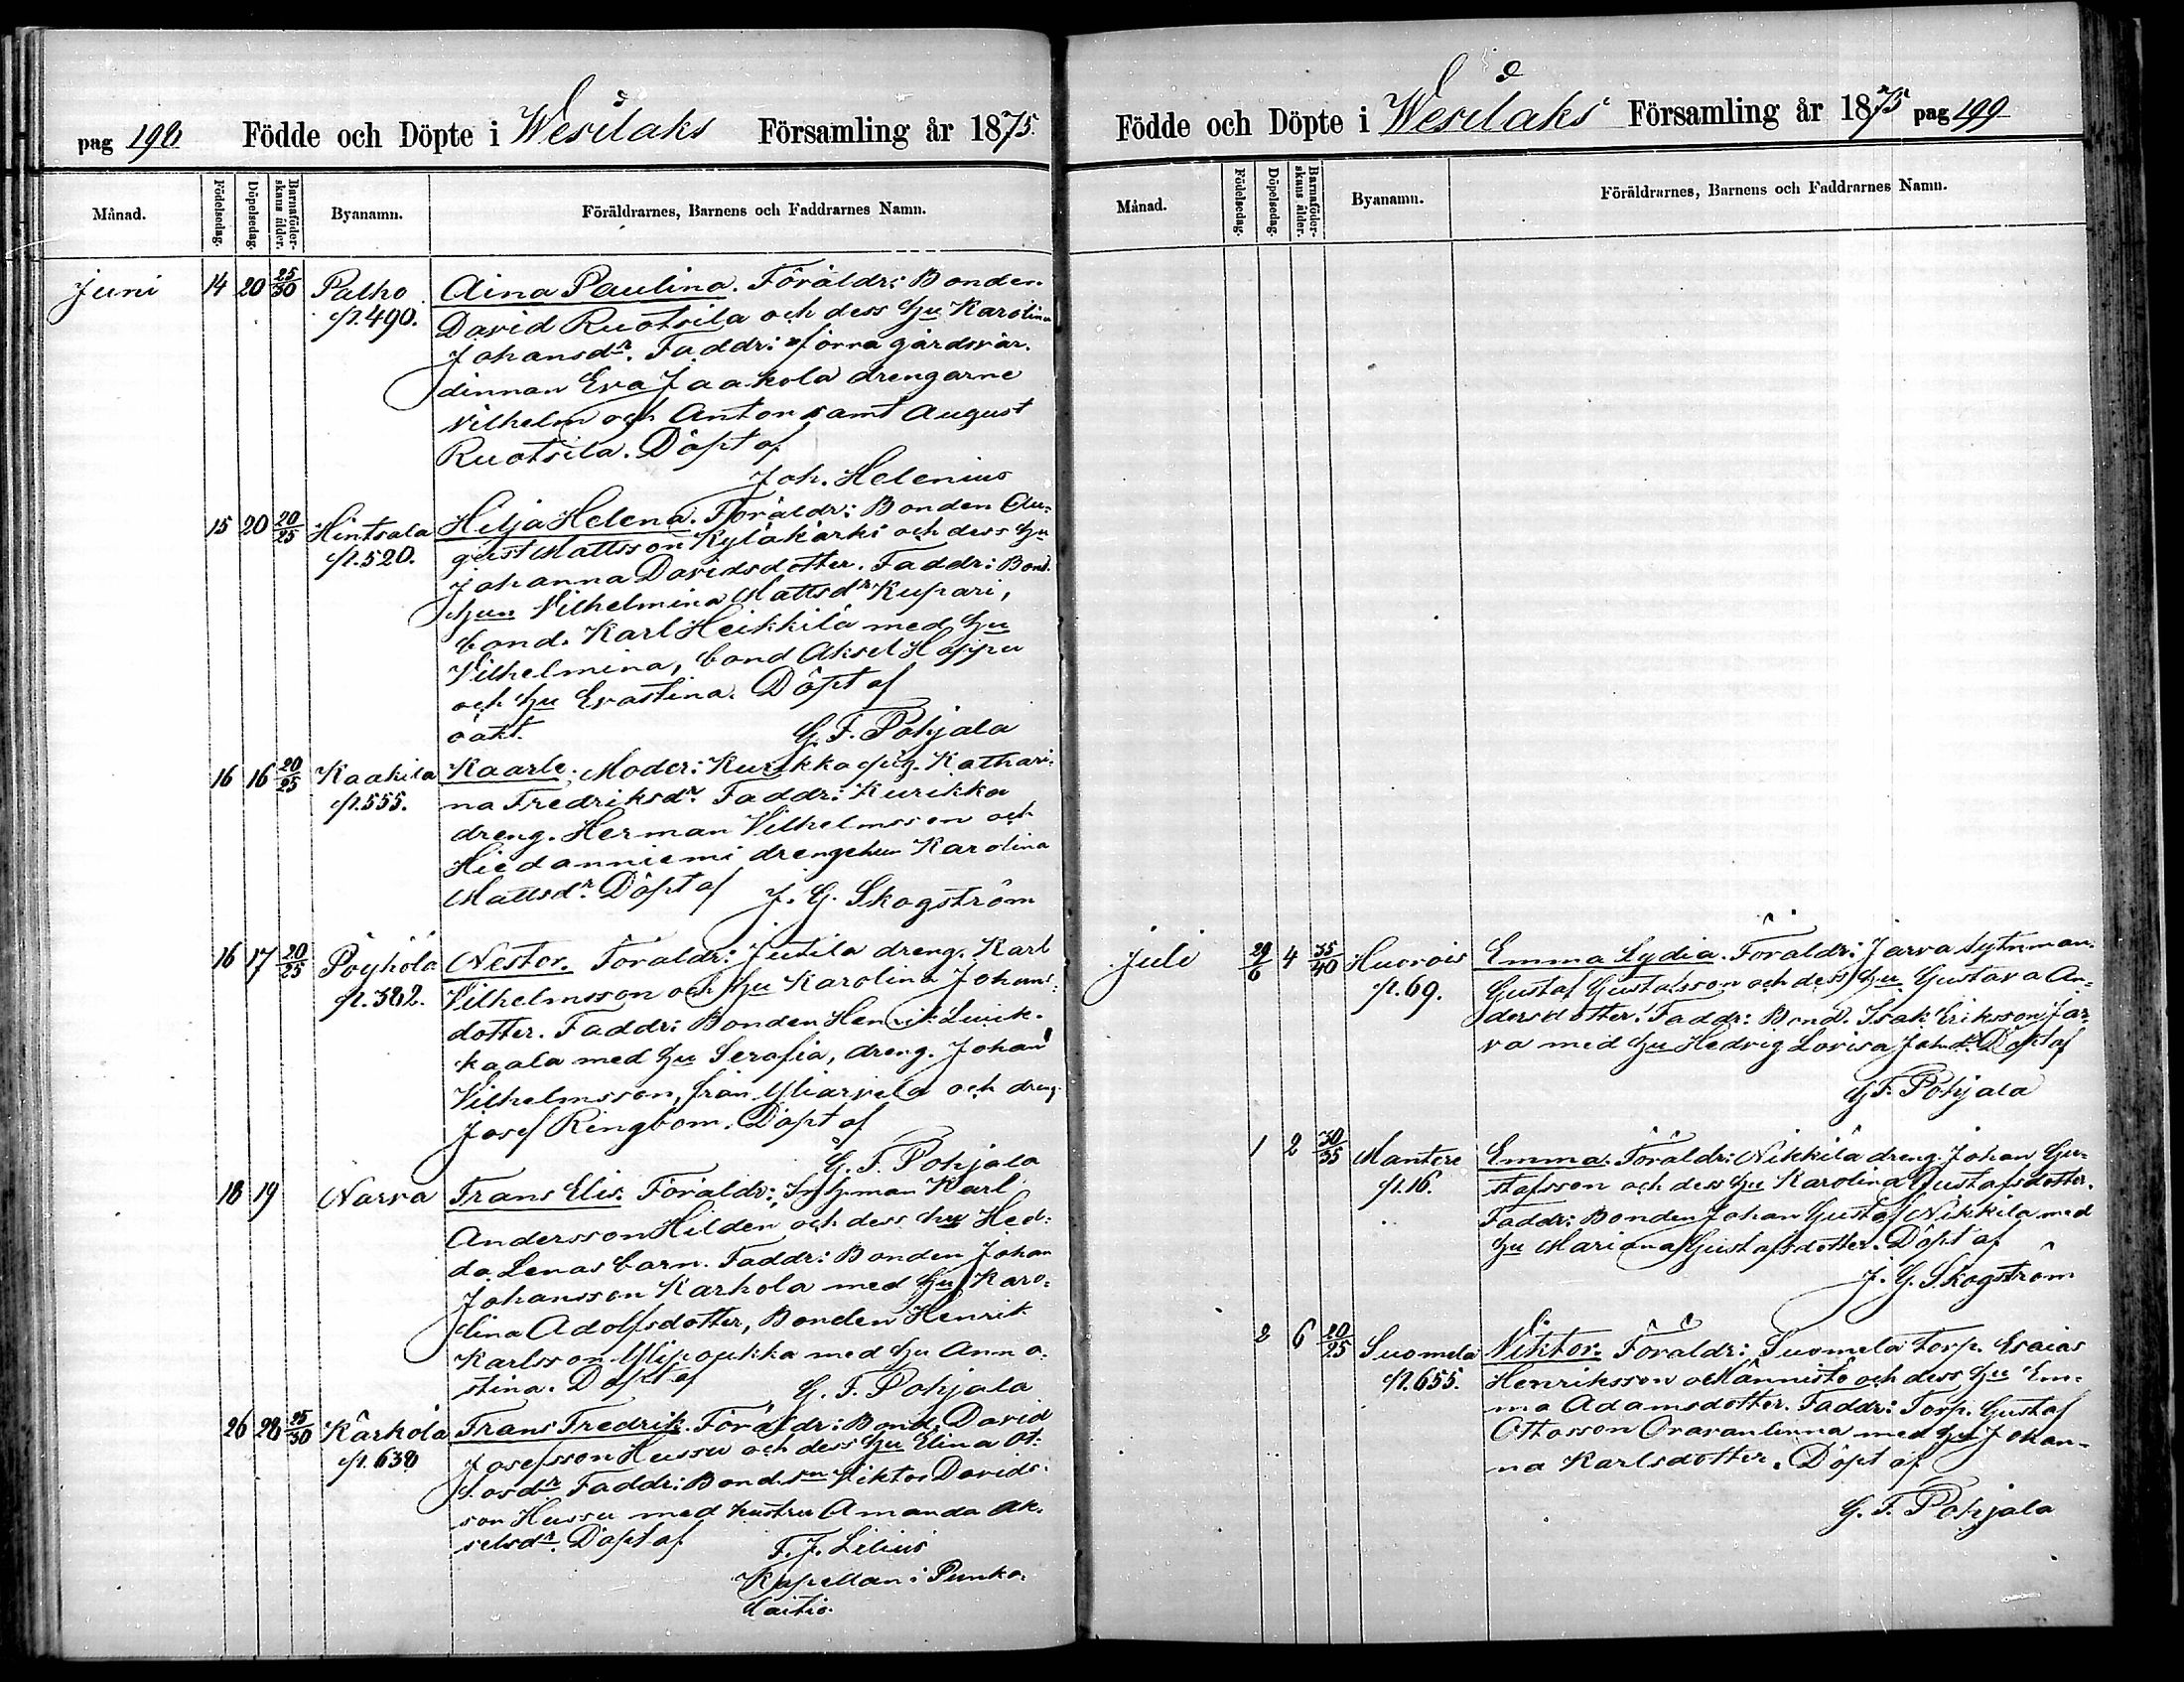 pag 198 Födde och Döpte i Wesilaks Församling år 1875.
Månad. Födelsedag. Döpelsedag. Barnaföderskans ålder. Byanamn. Föräldrarnes, Barnens och Faddrarnes Namn.
Juni 14 20 25/30 Palho Aina Paulina. Föräldr: Bonden
p. 490. David Ruotsila och dess hu Karolina
Johansdr. Faddr: förra gårdsvär.
dinnan Eva Jaakola drengarne
Vilhelm och Anton samt August
Ruotsila. Döpt af
Joh. Helenius
15 20 20/25 Hintsala Hilja Helena. Föräldr: Bonden Au-
p. 520. gust Mattsson Kyläkärki och dess hu
Johanna Davidsdotter. Faddr: Bond.
hun Vilhelmina Mattsdr Kupari,
bond. Karl Heikkilä med hu
Vilhelmina, bond Aksel Hoppu
och hu Evastina. Döpt af
oäkt. G. F. Pohjala
16 16 20/25 Kaakila Kaarle. Moder: Kurikka pig. Kathari-
p. 555. na Fredriksdr. Faddr: Kurikka
dreng. Herman Vilhelmsson och
Hiedanniemi drengehun Karolina
Mattsdr. Döpt af J. G. Skogström
16 17 20/25 Pöyhölä Nestor. Föräldr: Jutila dreng. Karl
p. 382. Vilhelmsson och hu Karolina Johans-
dotter. Faddr: Bonden Henrik Luik-
kaala med hu Serafia, dreng. Johan
Vilhelmsson, från Yliarvela och dreng.
Josef Ringbom. Döpt af
G. F. Pohjala
18 19 Narva Frans Elis. Föräldr: Inhman Karl
Andersson Hilden och dess hu Hed-
da Lenas barn. Faddr: Bonden Johan
Johansson Karhola med hu Karo-
lina Adolfsdotter, Bonden Henrik
Karlsson Ylipoukka med hu Anna
stina. Döpt af G. F. Pohjala
26 28 25/30 Kärkölä Frans Fredrik. Föräldr: Bond. David
p. 638 Josefsson Hussu och dess hu Elina Ot-
tosdr Faddr: Bond.sn Viktor Davids-
son Hussu med hustru Amanda Ak-
selsdr. Döpt af F. J. Lilius
Kapellan i Punka-
laitio.
Födde och Döpte i Wesilaks Församling år 1875 pag 199
Månad. Födelsedag. Döpelsedag. Barnaföderskans ålder. Byanamn. Föräldrarnes, Barnens och Faddrarnes Namn.
Juli 29/6 4 35/40 Huorois Emma Lydia. Föräldr: Järva sytnman.
p. 69. Gustaf Gustafsson och dess hu Gustava An-
dersdotter. Faddr: Bond. Isak Eriksson Jär-
vä med hu Hedvig Lovisa Johdr. Döpt af
G F. Pohjala
1 2 30/35 Mantere Emma. Föräldr: Nikkilä dreng. Johan Gu-
p. 16. stafsson och dess hu Karolina Gustafsdotter.
Faddr: Bonden Johan Gustaf Nikkilä med
hu Mariana Gustafsdotter. Döpt af
J. G. Skogström
2 6 20/25 Suomela Viktor. Föräldr: Suomela torp. Esaias
p. 655. Henriksson Männistö och dess hu Em-
ma Adamsdotter. Faddr: Torp. Gustaf
Ottosson Oravanlinna med hu Johan-
na Karlsdotter. Döpt af
G. F. Pohjala